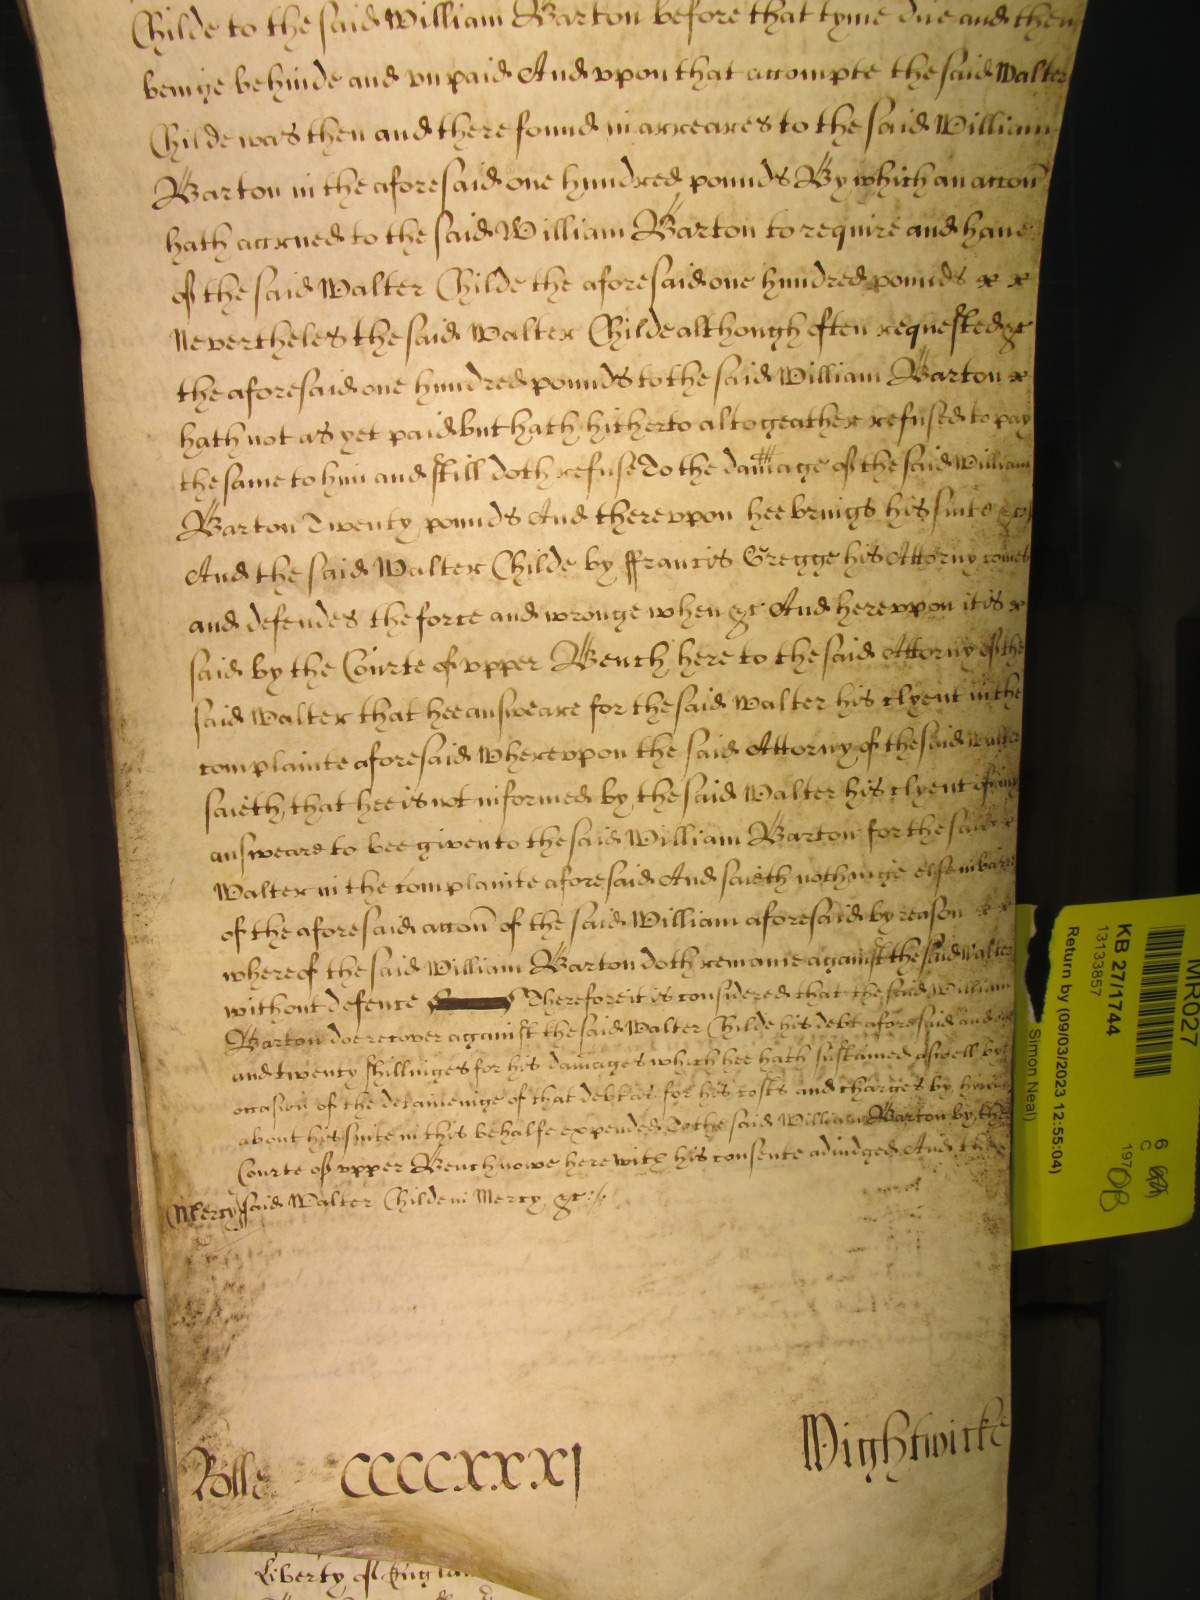 Childe to the said William Barton before that tyme due and then
beinge behinde and vnpaid And vpon that accompte the said Walter
Childe was then and there found in arreares to the said William
Barton in the aforesaid one hundred pounds By which an accon
hath accrued to the said William Barton to require and haue
of the said Walter Childe the aforesaid one hundred pounds x x
Neverthelesse the said Walter Childe although often requested &c
the aforesaid one hundred pounds to the said William Barton x
hath not as yet paid but hath hitherto altogeather refused to pay
the same to him and still doth refuse To the damage of the said William
Barton Twenty pounds And therevpon hee brings his suite &c
And the said Walter Childe by ffrancis Gregge his Attorny comes
and defendes the force and wronge when &c And herevpon it is x
said by the Courte of vpper Bench here to the said Attorny of the
said Walter that hee answeare for the said Walter his clyent in the
complainte aforesaid Wherevpon the said Attorny of the said Walter
saieth that hee is not informed by the said Walter his clyent of any
answeare to bee given to the said William Barton for the said x
Walter in the complainte aforesaid And saieth nothinge else in barre
of the aforesaid accon of the said William aforesaid by reason x x
whereof the said William Barton doth remaine against the said Walter
without defence Therefore it is considered that the said William
Barton doe recover against the said Walter Childe his debt aforesaid and
and twenty shillinges for his damages which hee hath sustained aswell by
occasion of the deteineinge of that debt as for his costs and charges by him
about his suite in this behalfe expended To the said William Barton by the
Courte of vpper Bench nowe here with his consente adiudged And the
Mercy said Walter Childe in Mercy &c
Rolle CCCCXXXJ
Wightwicke
Liberty of Englan
MR027
KB 27/1744
13133857
Return by (09/03/2023 12:55:04)
Simon Neal)
6
C
197